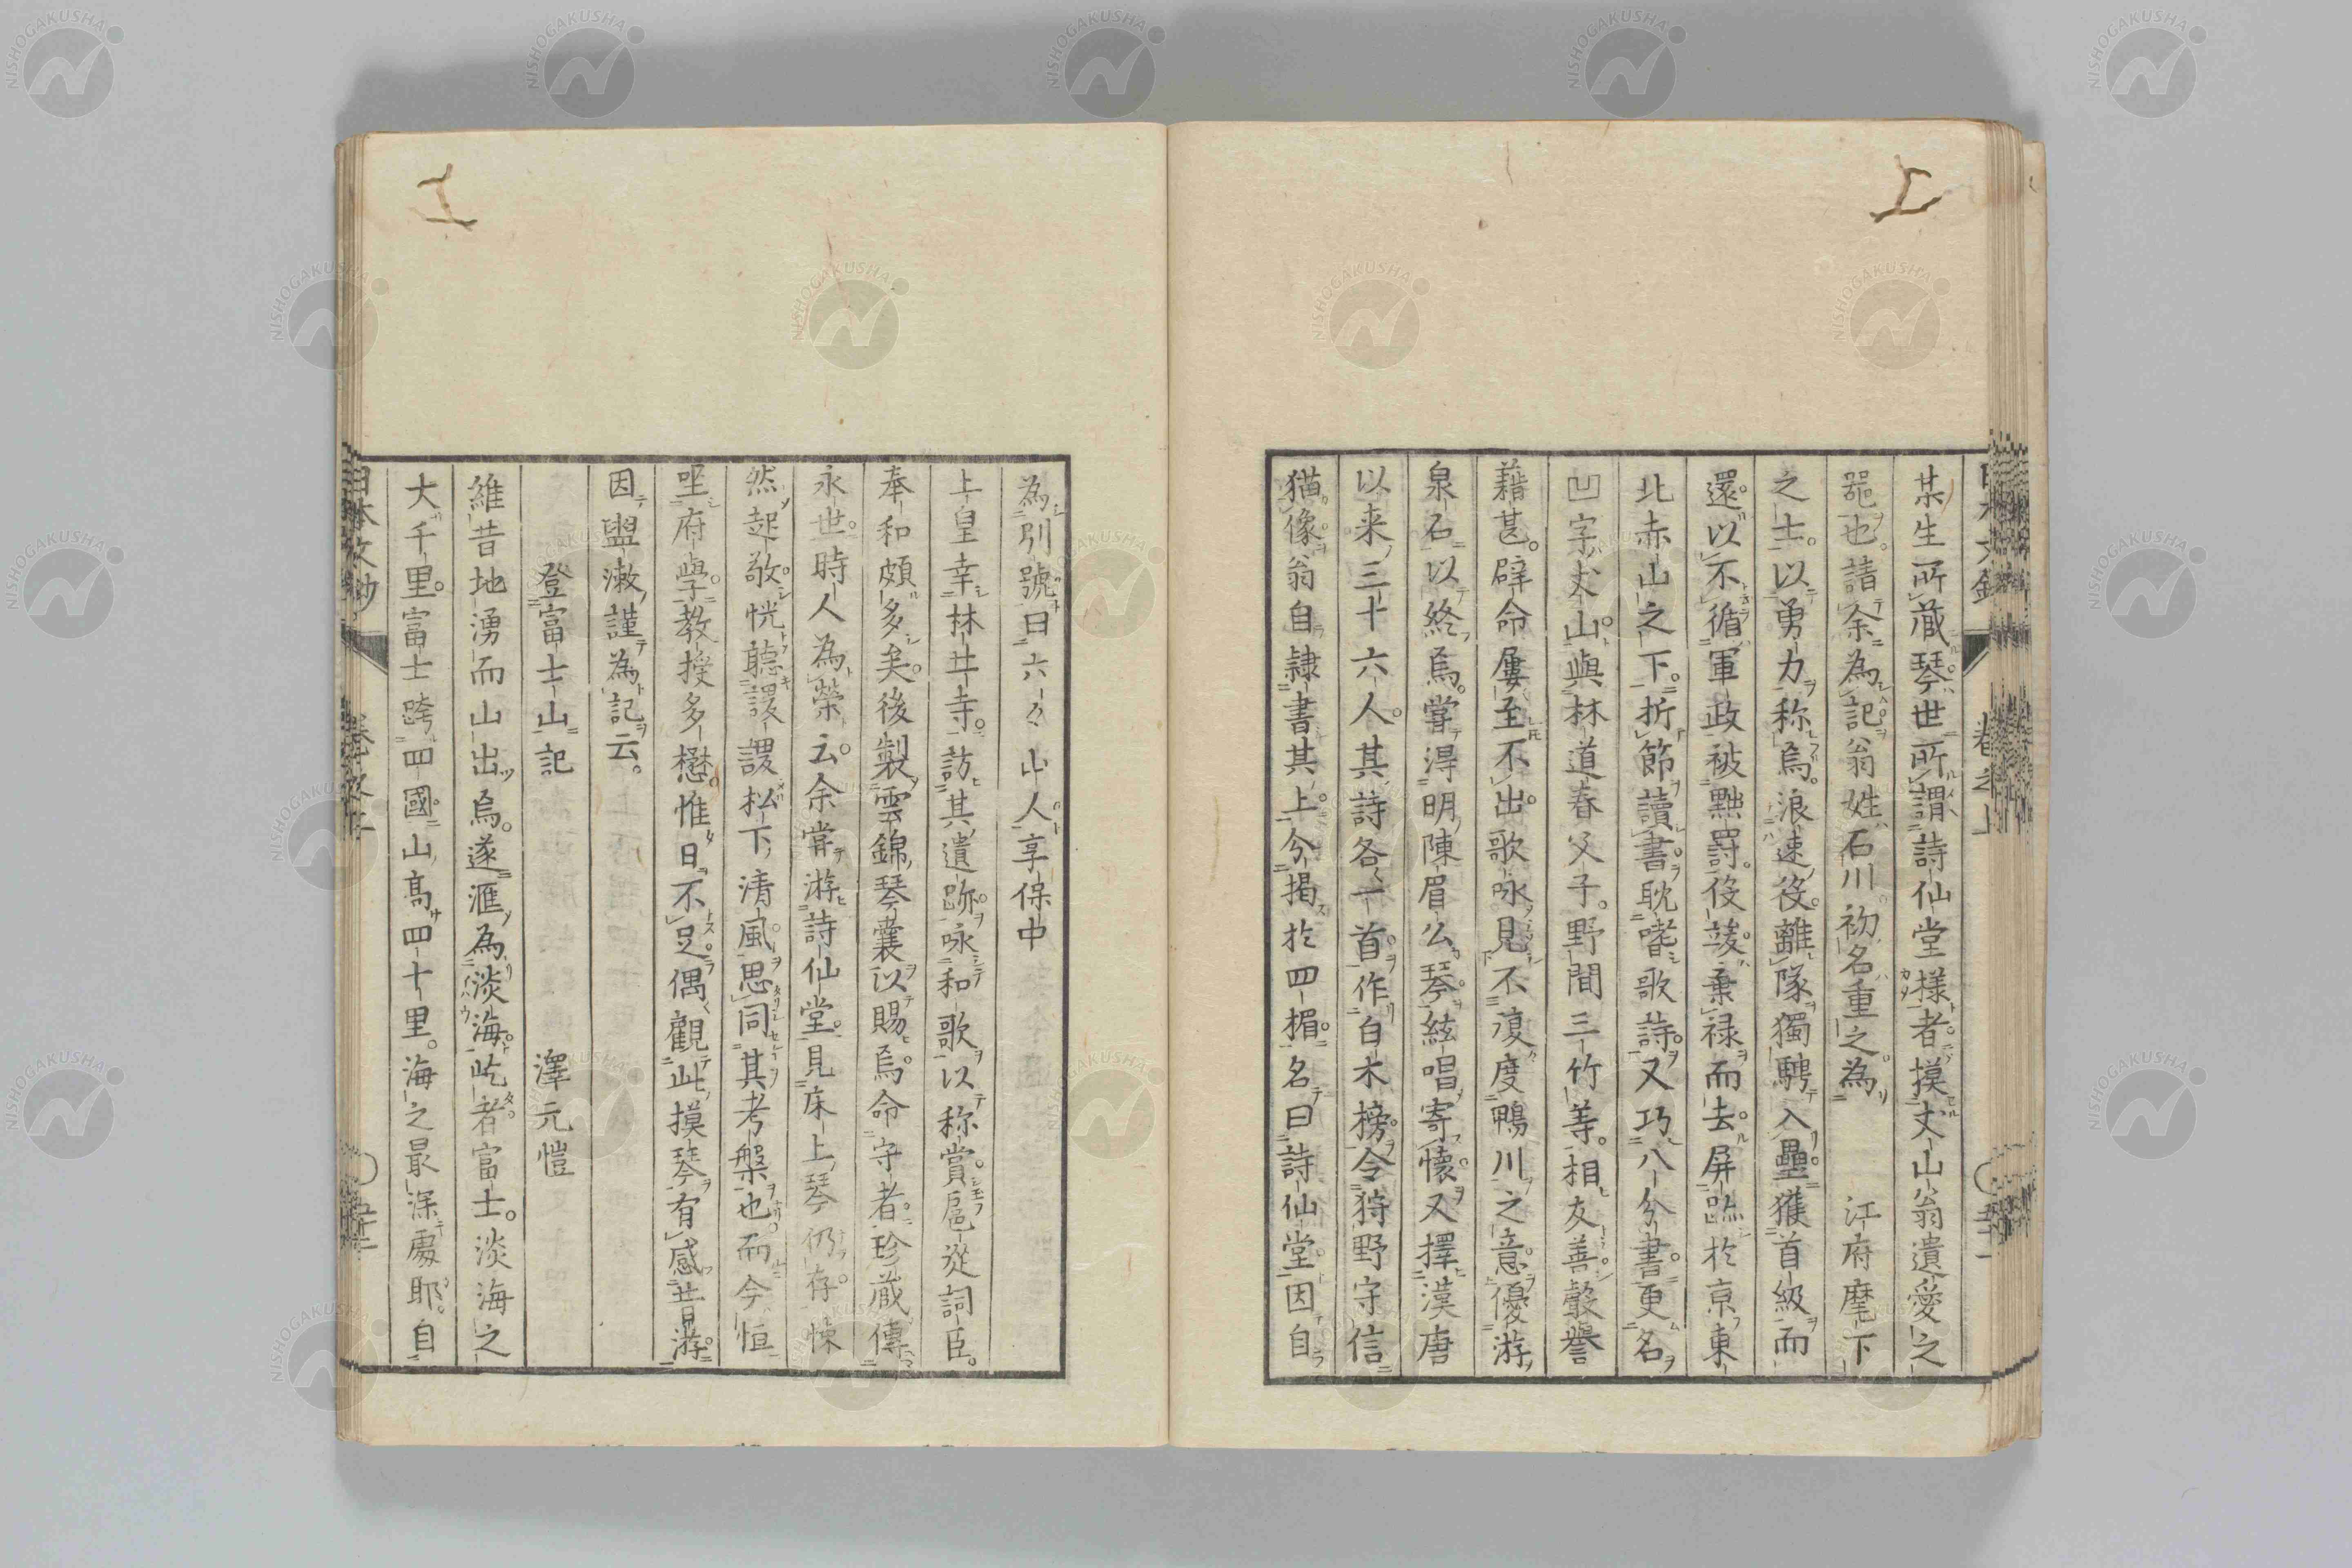 某生所藏琴世所謂詩仙堂樣者摸丈山翁遺愛之
器也請余為記翁姓石川初名重之為 江府麾下
之士以勇力称焉浪速役離隊獨騁入壘獲首級而
還以不循軍政被黜罰役竣棄禄而去屏跡於京東
北赤山之下折節讀書耽嗜歌詩又巧八分書更名
凹字丈山與林道春父子野間三竹等相友善聲譽
藉甚辟命屢至不出歌咏見不復度鴨川之意優游
泉石以終焉甞得明陳眉公琴絃唱寄懷又擇漢唐
以来三十六人其詩各一首作白木榜令狩野守信
猫像翁自隷書其上今掲於四楣名曰詩仙堂因自
為別號曰六々山人享保中
上皇幸林丘寺訪其遺跡咏和歌以称賞扈從詞臣
奉和頗多矣後製雲錦琴囊以賜焉命守者珍藏傳
永世時人為榮云余甞游詩仙堂見床上琴仍存悚
然起敬恍聽謖謖松下清風思同其考槃也而今恒
坐府學教授多懋惟日不足偶觀此摸琴有感昔游
因盥漱謹為記云
登富士山記 澤元愷
維昔地湧而山出焉遂滙為淡海屹者富士淡海之
大千里富士跨四國山高四十里海之最深處耶自
日本文鈔 卷之上